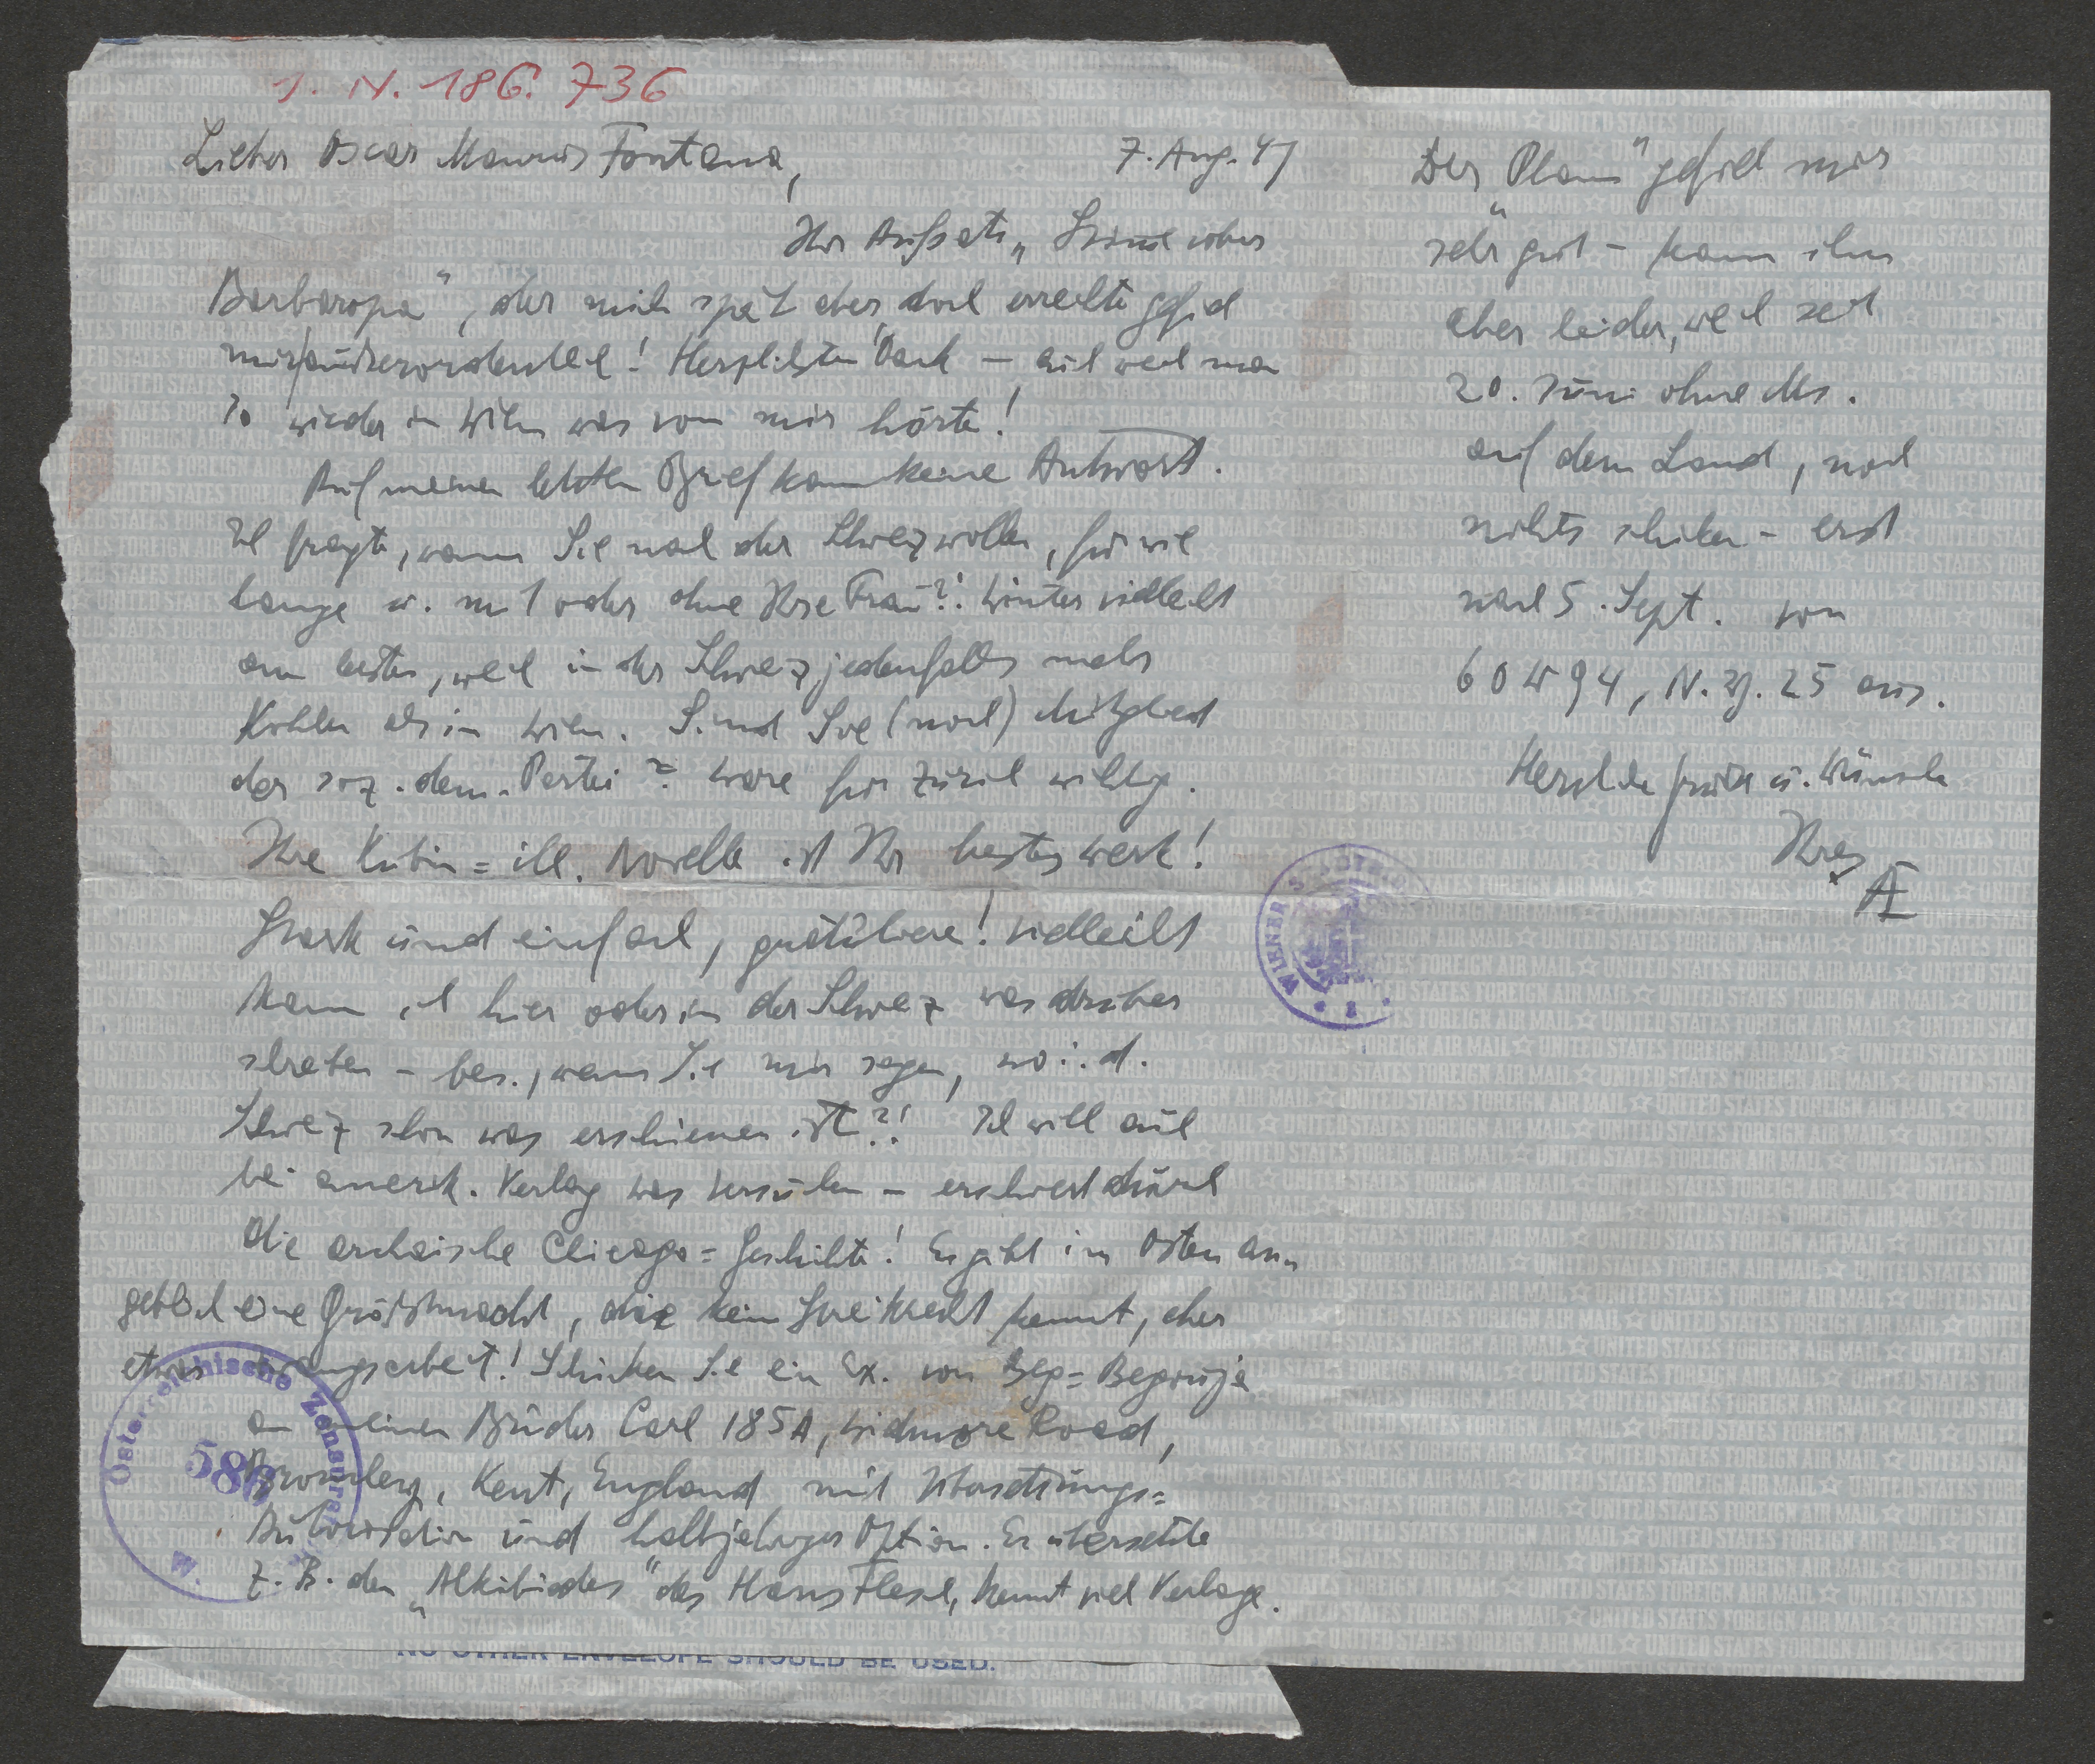 I. N. 186.736
Lieber Oscar Maurus Fontana,
7. Aug. 47
Ihr Aufsatz „
Barbaropa", der mich spät aber doch erreichte gefiel
mir außerordentlich! Herzlichsten Dank — auch weil man
so wieder in Wien was von mir hörte!
Auf meinen letzten Brief kam keine Antwort.
Ich fragte, wann Sie nach der Schweiz wollen, für wie
lange u. mit oder ohne Ihre Frau?! Winter vielleicht
am besten, weil in der Schweiz jedenfalls mehr
Kohlen als in Wien. Sind Sie (noch) Mitglied
der soz. dem. Partei? Wäre für Zürich wichtig.
Ihre Kubin=ill. Novelle ist Ihr bestes Werk!
Stark und einfach, gratuliere! Vielleicht
kann ich hier oder in der Schweiz was drüber
schreiben – bes., wenn Sie mir sagen, wo i. d.
Schweiz schon was erschienen ist?! Ich will auch
bei amerik. Verlag was versuchen – erschwert durch
die archaische Chicago=Geschichte! Es gibt im Osten an=
geblich eine Großmacht, die kein Streikrecht kennt, aber
etwas Zwangsarbeit! Schicken Sie ein Ex. von
an meinen Bruder Carl 185A, Widmore Road,
Kent, England mit Übersetzungs=
Autorisation und halbjähriger Option. Er übersetzte
z. B. den „Alkibiades" des Hans Flesch, kennt viel Verlage.
Der „Plan" gefiel mir
sehr gut – kann ihm
aber leider, weil seit
20. Juni ohne Ms.
auf dem Land, noch
nichts schicken – erst
nach 5. Sept. von
60 W 94, N. Y. 25 aus.
Herzliche Grüße u. Wünsche
Ihres
Österreichische Zensur
WIENER STADTBIBL
NO OTHER ENVELOPE SHOULD BE USED.
UNITED STATES FOREIGN AIR MAIL